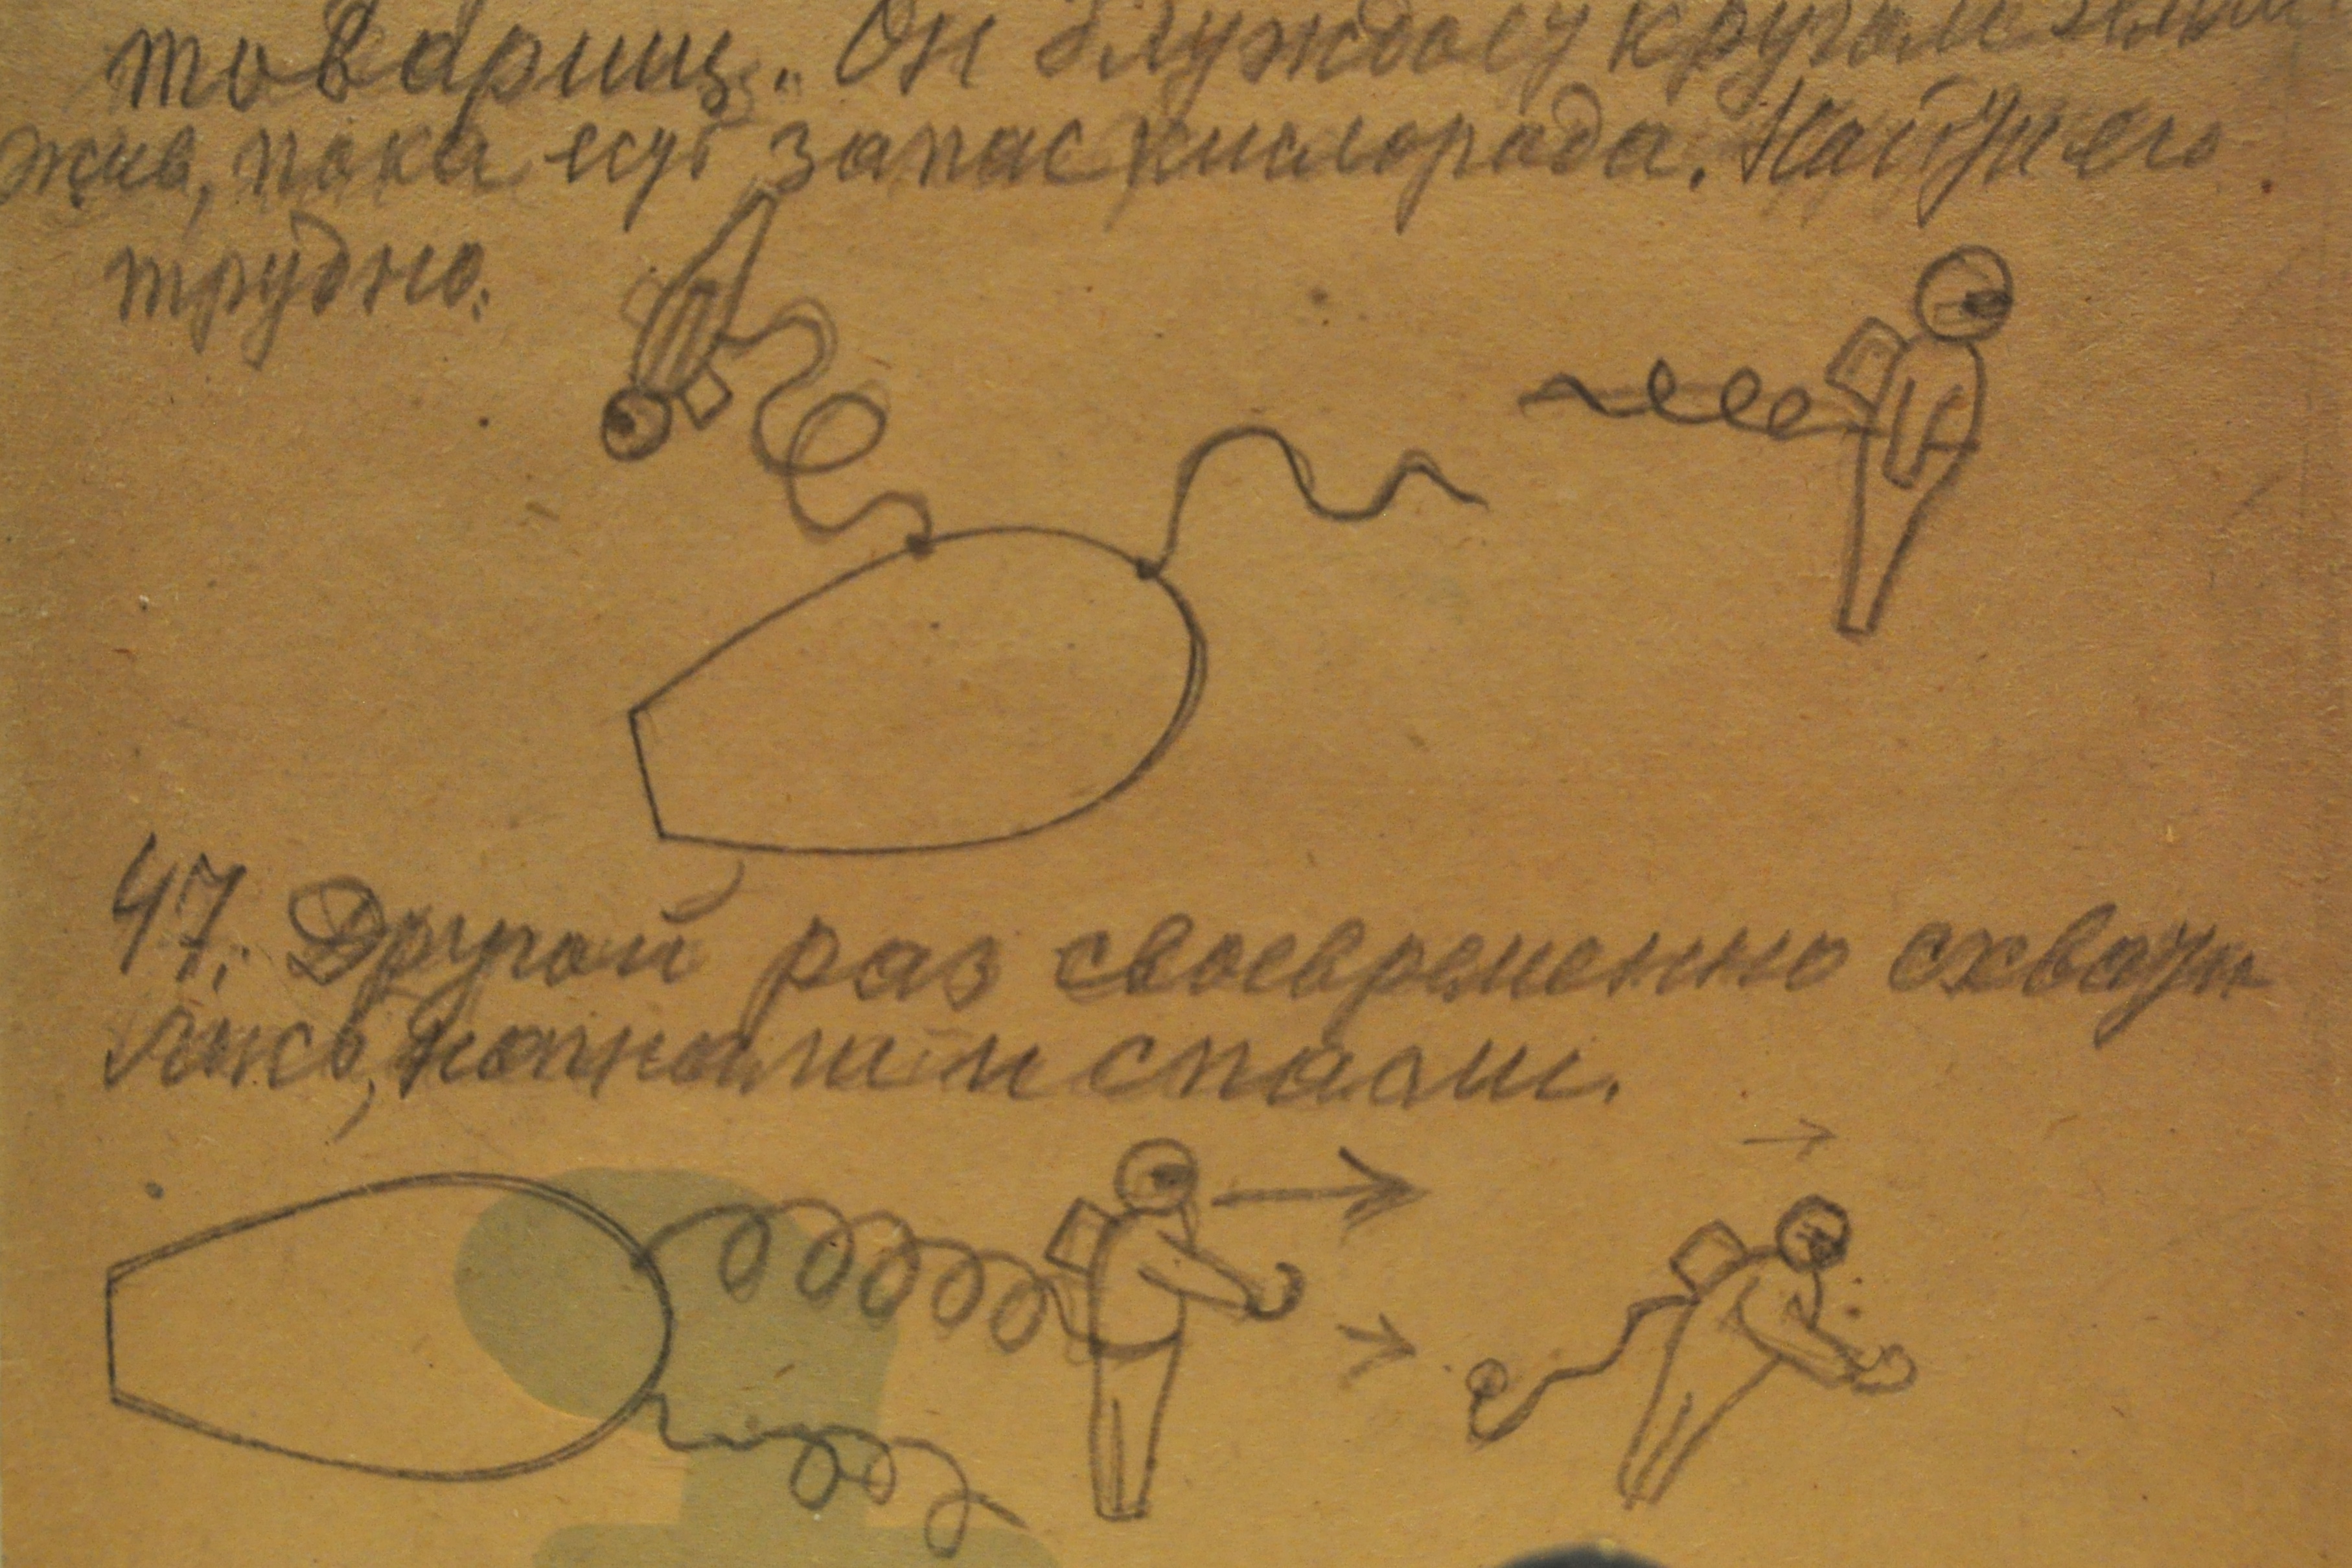 товарищ. Он блуждает кругом земли
жив, пока ест запас кислорода. Найти его
трудно.
47. Другой раз своевременно схвати
лись, нагнали и спасли.